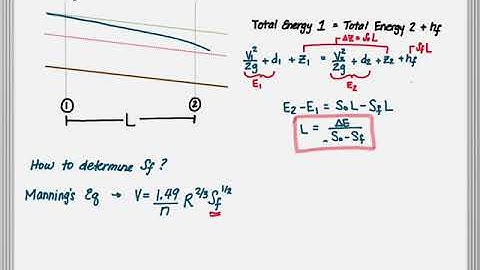 Total Energy 1 = Total Energy 2 + hf
ΔZ = S₀L
SfL
V₁²/2g + d₁ + z₁ = V₂²/2g + d₂ + z₂ + hf
E₁
E₂
E₂-E₁ = S₀L - SfL
L = ΔE / S₀-Sf
① ②
L
How to determine Sf ?
Manning's Eq → V = 1.49/n R^2/3 Sf^1/2